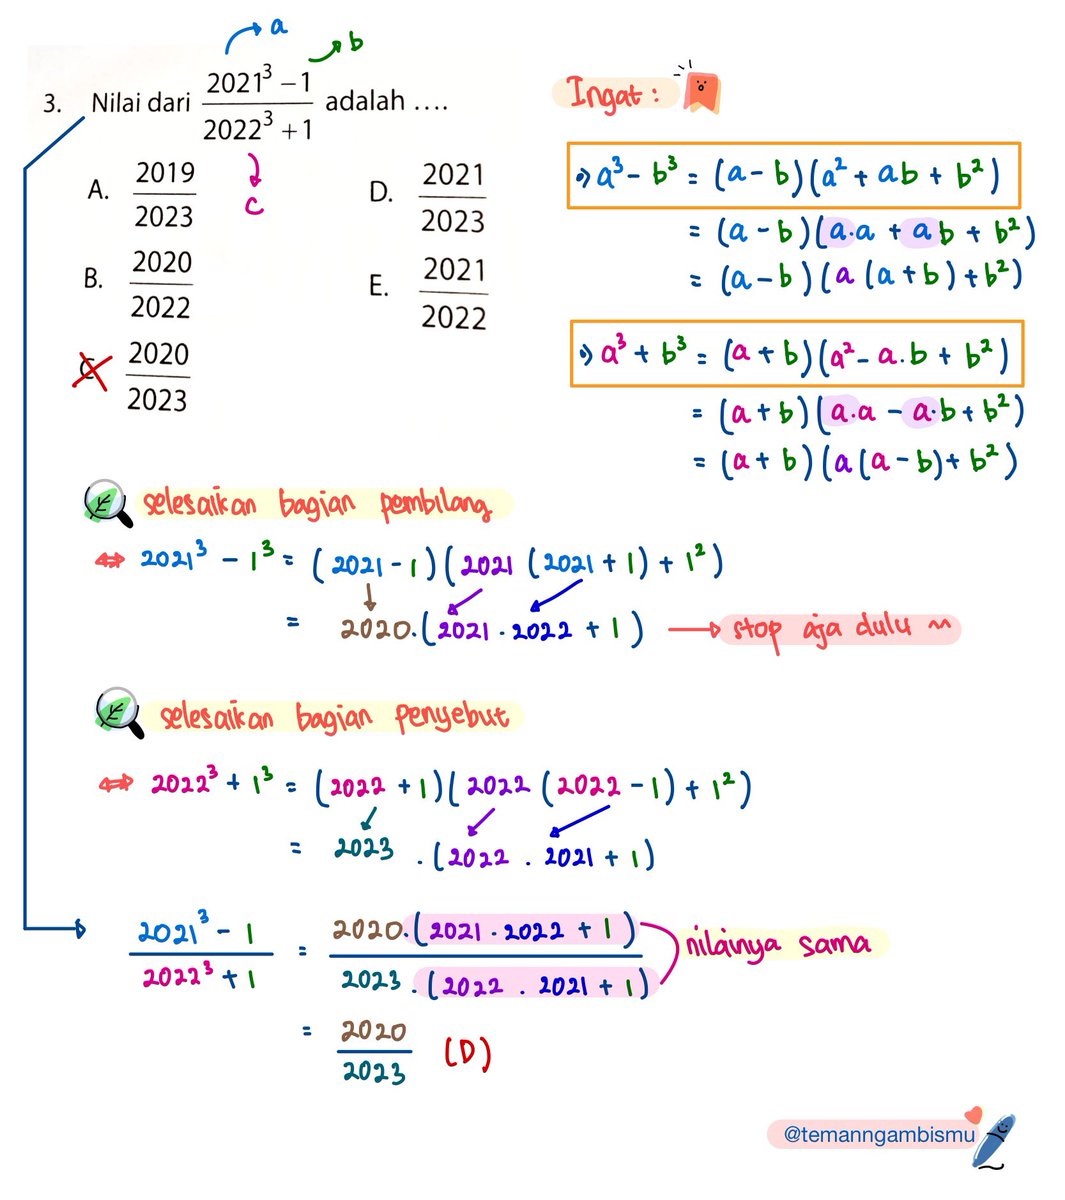 a
b
3. Nilai dari (2021³ – 1)/(2022³ + 1) adalah ....
c
A. 2019/2023
B. 2020/2022
C 2020/2023
D. 2021/2023
E. 2021/2022
Ingat :
a³ - b³ = (a - b)(a² + ab + b²)
= (a - b)(a.a + ab + b²)
= (a - b)(a (a + b) + b²)
a³ + b³ = (a + b)(a² - a.b + b²)
= (a + b)(a.a - a.b + b²)
= (a + b)(a(a - b) + b²)
selesaikan bagian pembilang
⇔ 2021³ - 1³ = (2021 - 1)(2021 (2021 + 1) + 1²)
= 2020.(2021 . 2022 + 1) → stop aja dulu ~
selesaikan bagian penyebut
⇔ 2022³ + 1³ = (2022 + 1)(2022 (2022 - 1) + 1²)
= 2023 . (2022 . 2021 + 1)
(2021³ - 1)/(2022³ + 1) = 2020.(2021 . 2022 + 1)/2023.(2022 . 2021 + 1) nilainya sama
= 2020/2023 (D)
@temanngambismu